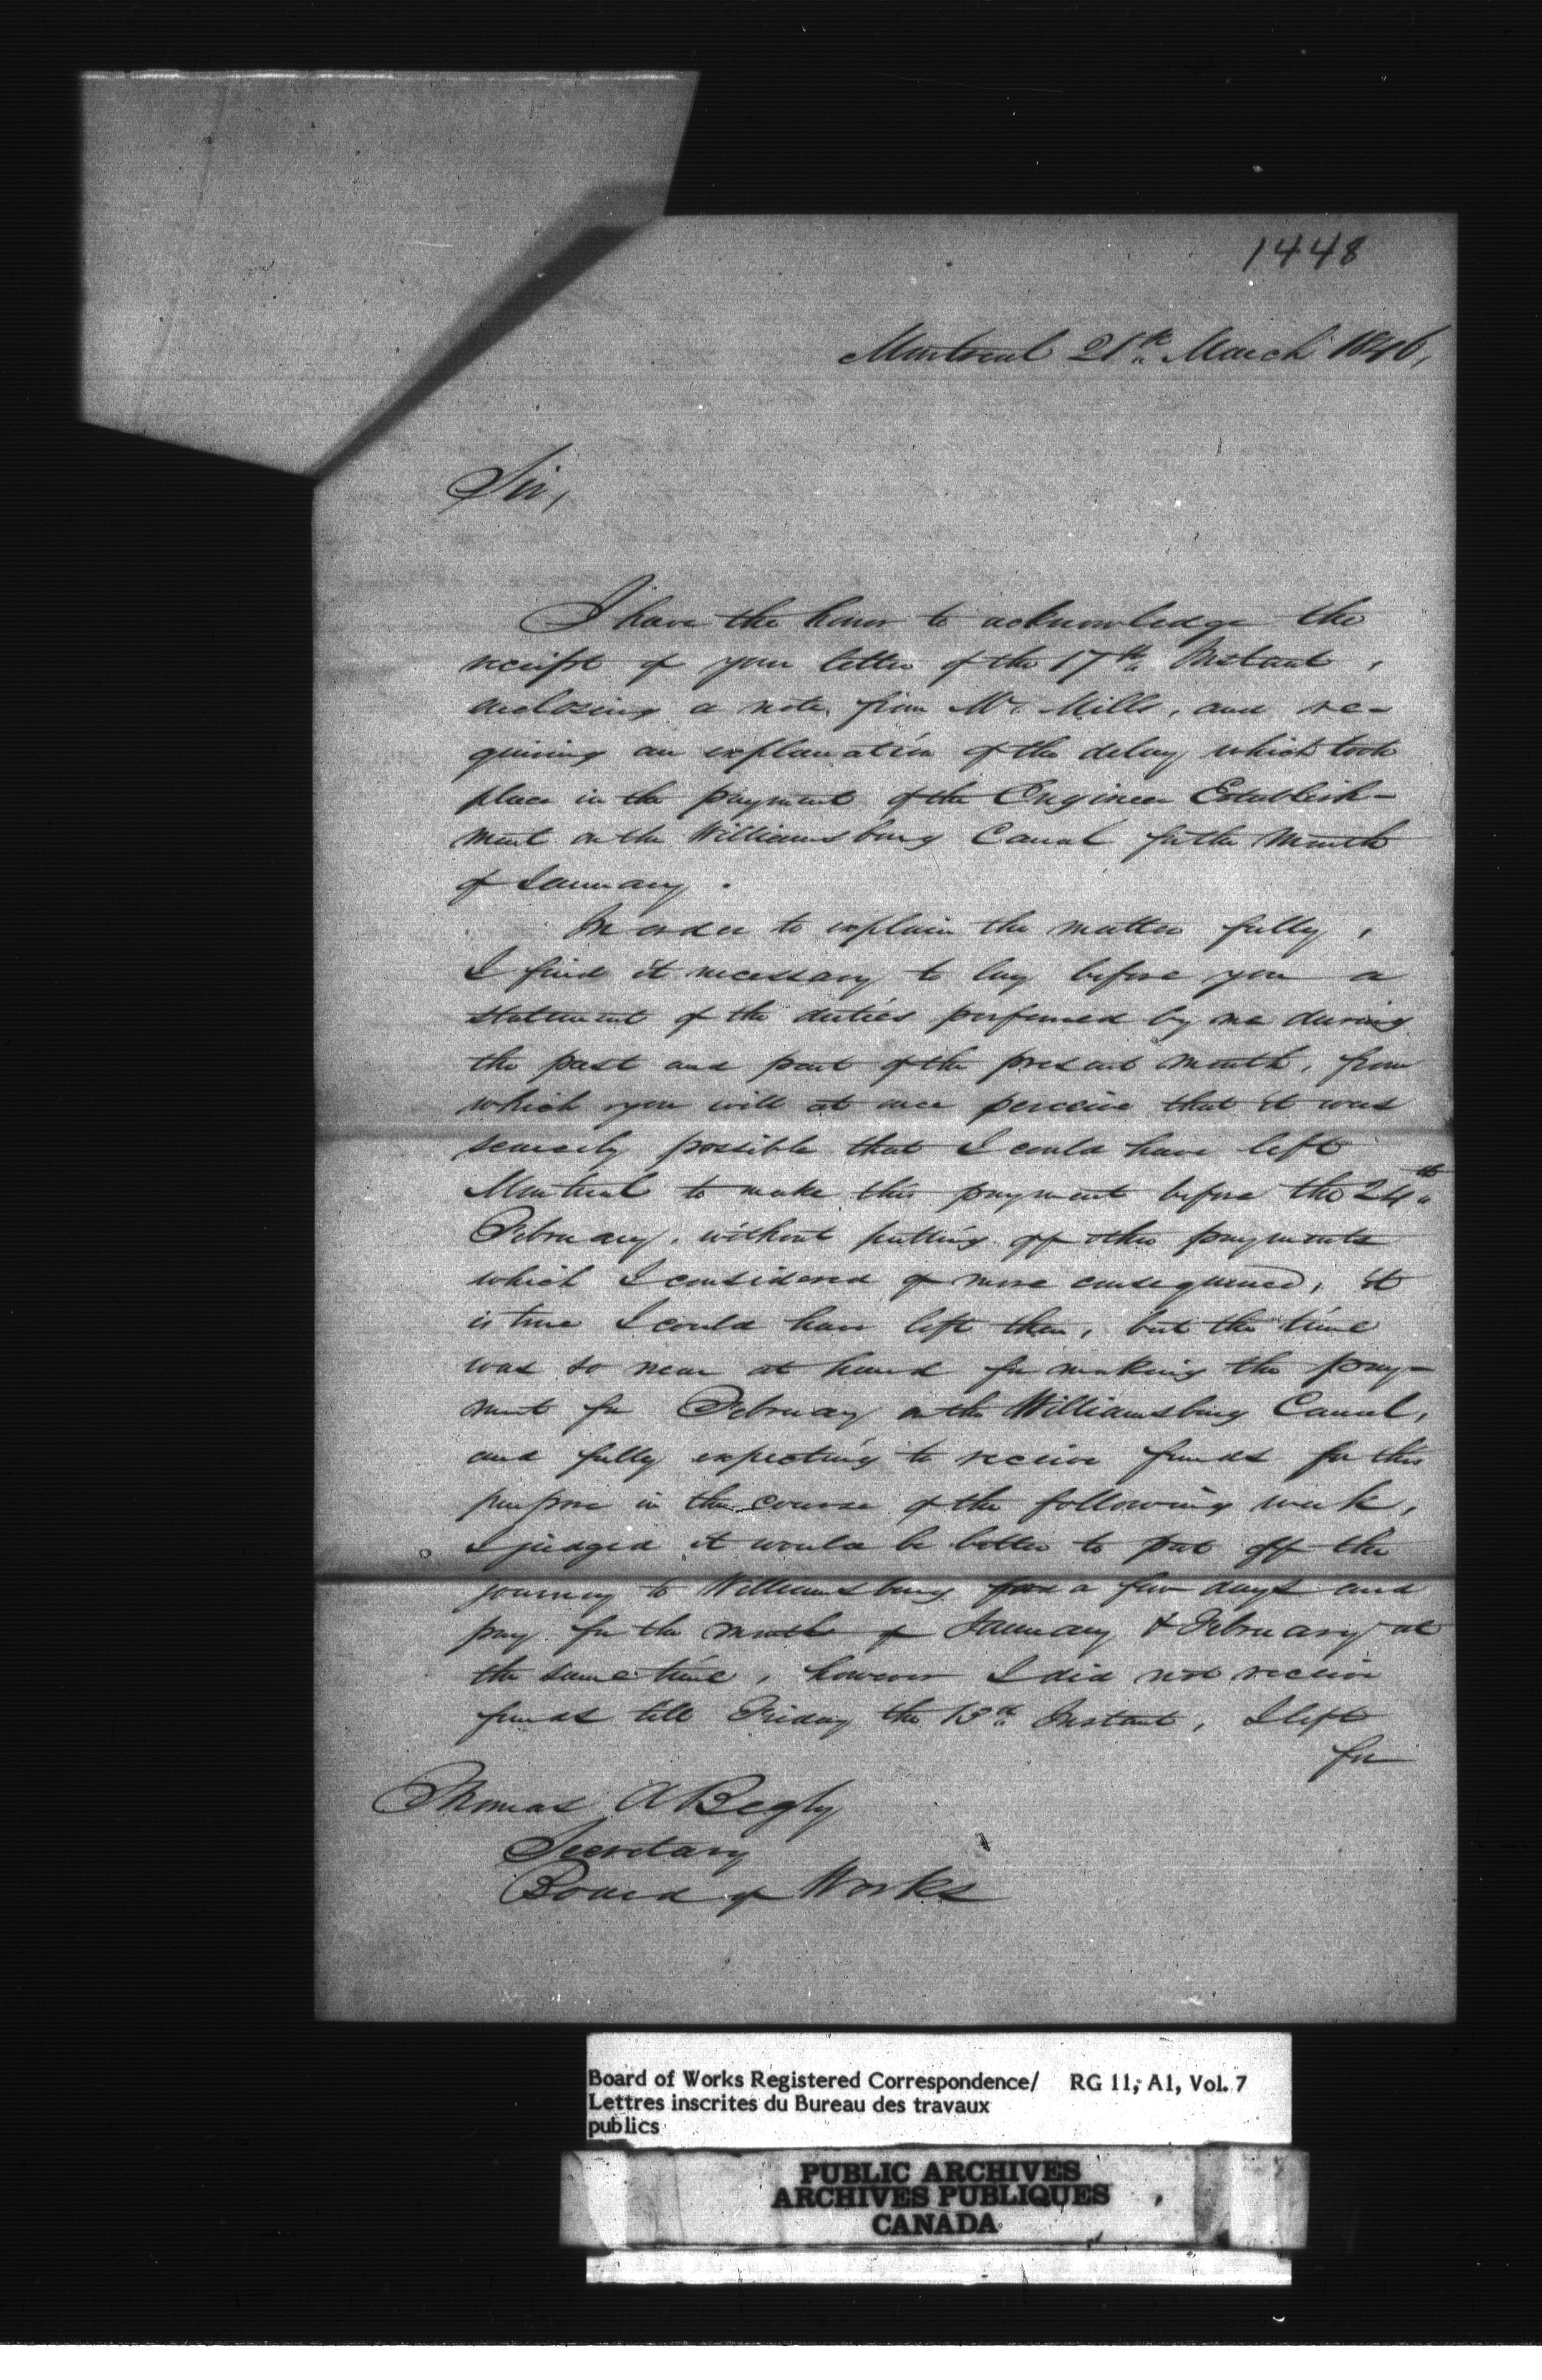 1448
Montreal 21st March 1846,
Sir,
I have the honor to acknowledge the
receipt of your letter of the 17th Instant,
enclosing a note from Mr. Mills, and re-
quiring an explanation of the delay which took
place in the payment of the Engineer Establish-
ment on the Williamsburg Canal for the Month
of January.
In order to explain the matter fully,
I find it necessary to lay before you a
statement of the duties performed by me during
the past and part of the present month, from
which you will at once perceive that it was
scarcely possible that I could have left
Montreal to make this payment before the 24th
February, without putting off other payments
which I considered of more consequence, it
is true I could have left then, but the time
was so near at hand for making the pay-
ment for February on the Williamsburg Canal,
and fully expecting to receive funds for this
purpose in the course of the following week,
I judged it would be better to put off the
journey to Williamsburg for a few days and
pay for the month of January & February at
the same time, however I did not receive
funds till Friday the 13th Instant, I left
for
Thomas A Begly
Secretary
Board of Works
Board of Works Registered Correspondence/ RG 11, A1, Vol. 7
Lettres inscrites du Bureau des travaux
publics
PUBLIC ARCHIVES
ARCHIVES PUBLIQUES
CANADA